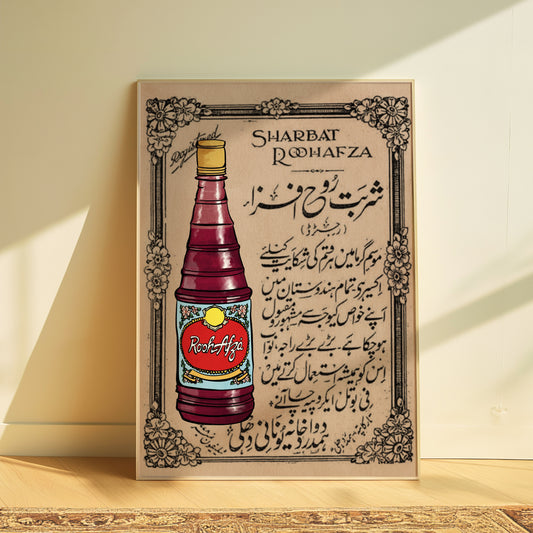 Registered
SHARBAT
ROOHAFZA
شربت روح افزا
(رجسٹرڈ)
موسم گرما میں ہر قسم کی شکایت کیلئے
اکسیر ہو تمام ہندوستان میں
اپنے خواص کیوجہ سے مشہور و مقبول
ہو چکا ہے بڑے بڑے راجہ، نواب
اس کو ہمیشہ استعمال کرتے ہیں
فی بوتل ایکروپیہ چار آنے
ہمدرد دواخانہ یونانی دہلی
Rooh Afza